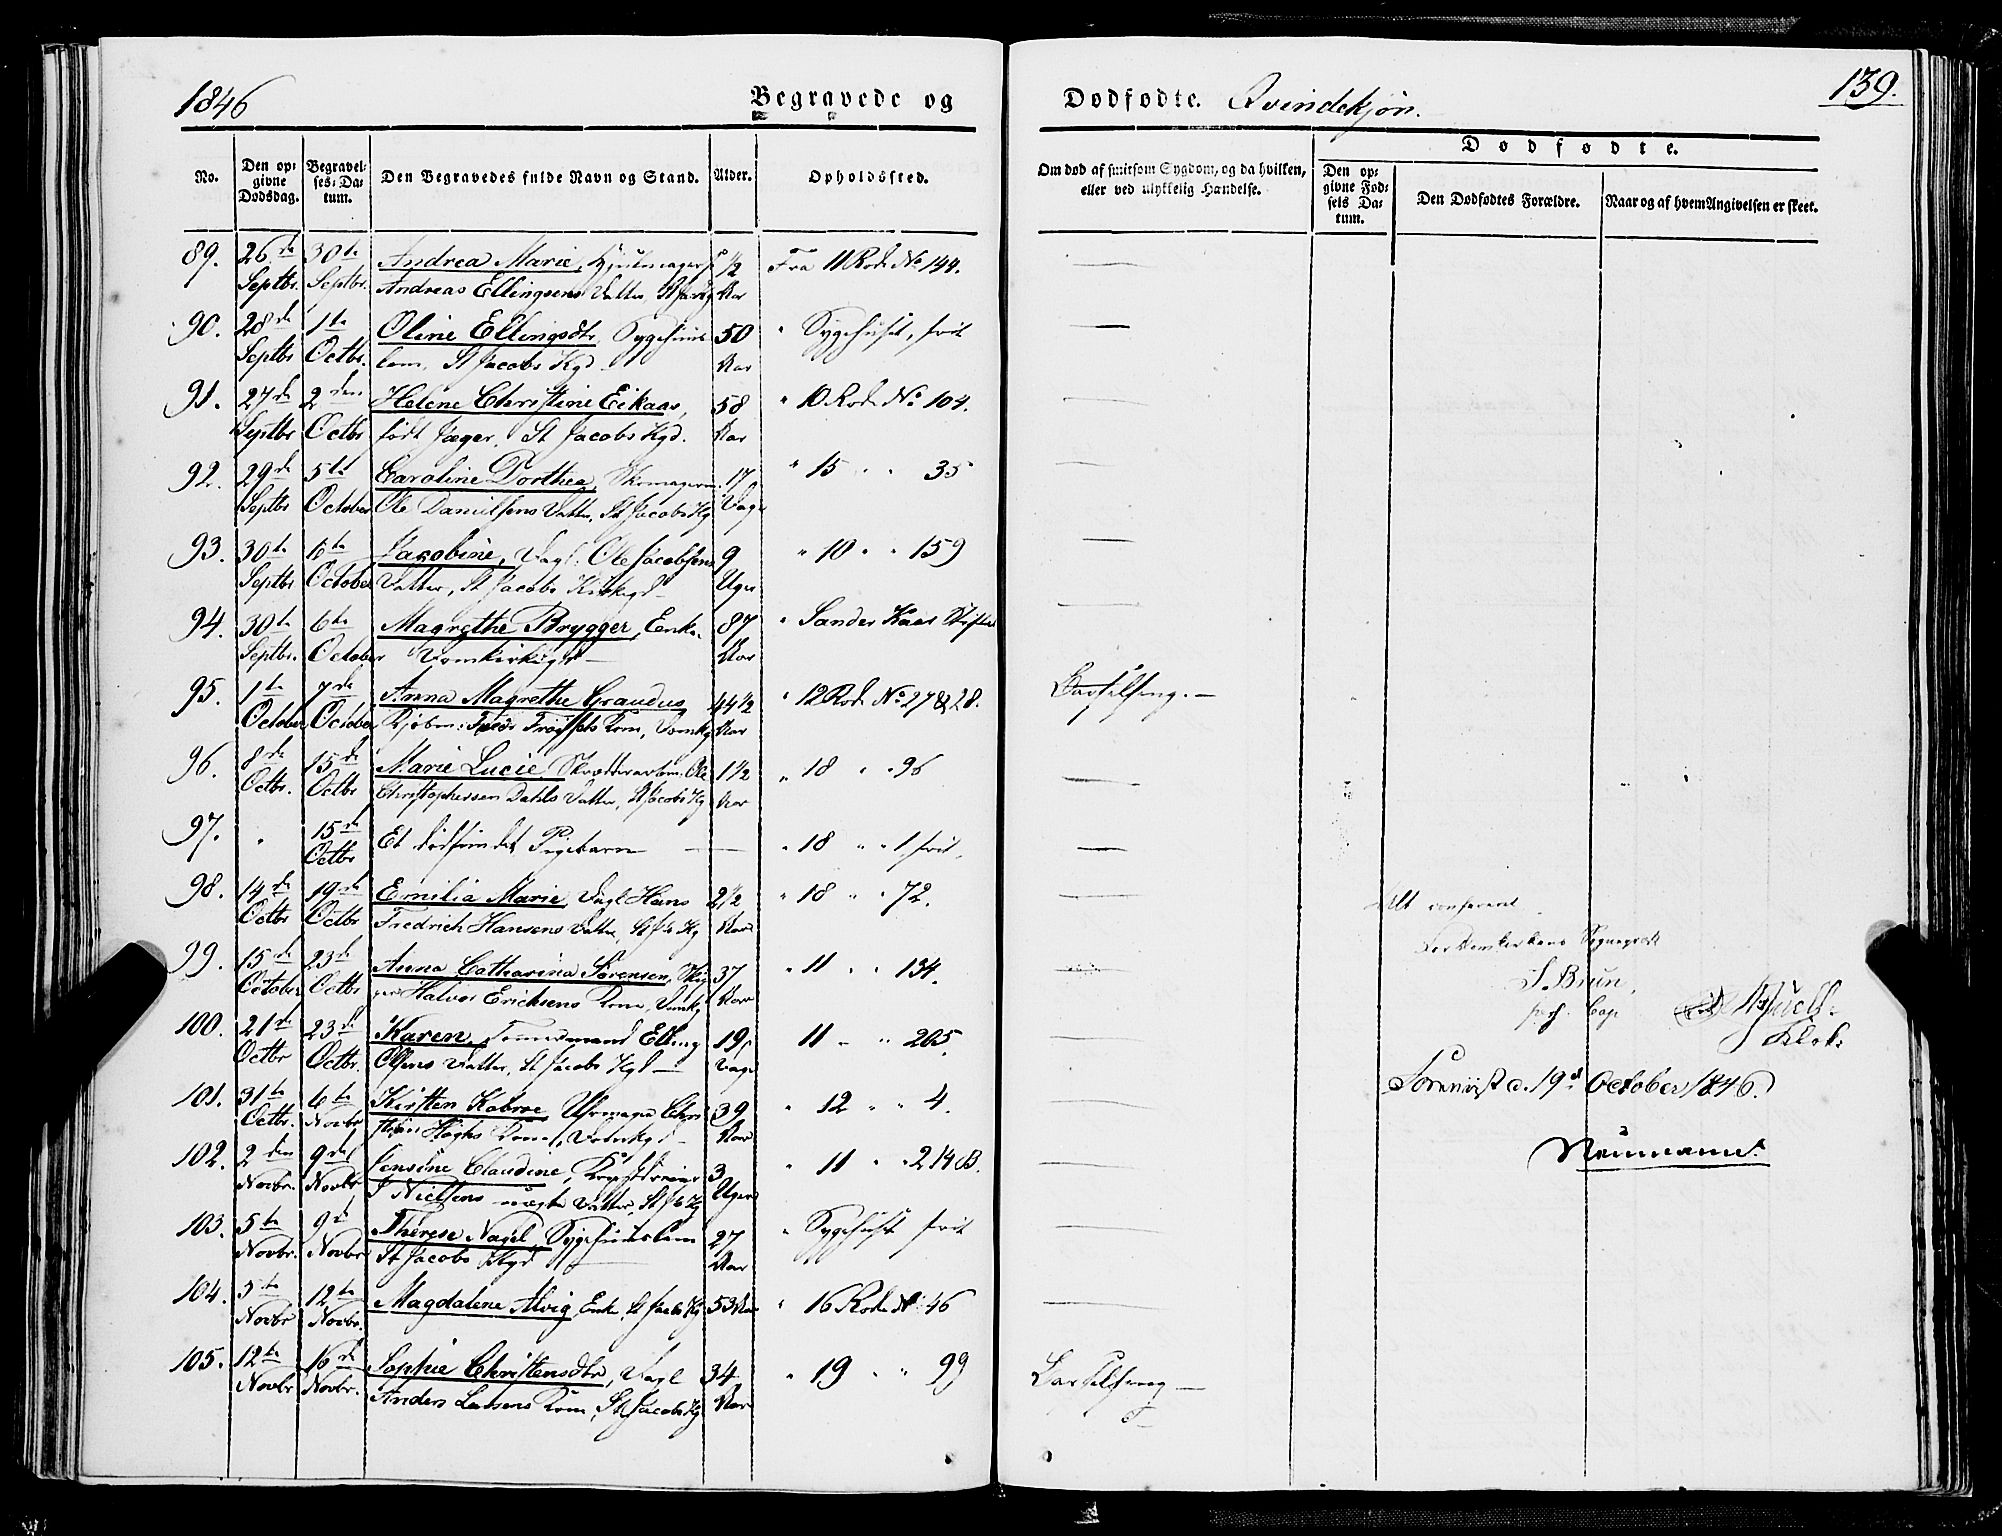 1846
Begravede og
Dødfødte. Qvindekjøn.
139.
No.
Den opgivne Dødsdag.
Begravelses-Datum.
Den Begravedes fulde Navn og Stand.
Alder.
Opholdssted.
Om død af smitsom Sygdom, og da hvilken,
eller ved ulykkelig Hændelse.
Dødfødte.
Den opgivne Fødsels Datum.
Den Dødfødtes Forældre.
Naar og af hvem Angivelsen er skeet.
89. 26de 30te Andrea Marie, Hjulmagers 1/2 Fra 11 Rode No 144.
Septbr. Septbr. Andreas Ellingsens Datter, Aar
90. 28de 1te Oline Ellingsdtr, Sygehuus 50 " Sygehuset, frit
Septbr Octbr. lem, St Jacobs Kgd Aar
91. 27de 2den Helene Christine Eikaas, 58 " 10 Rode No 104.
Septbr Octbr født Jæger, St Jacobs Kgd. Aar
92. 29de 5te Caroline Dorthea, Skomagersv. 17 " 15 " " 35
Septbr October Ole Danielsens Datter, St Jacobs Kg Dage
93. 30te 6te Jacobine, Dagl. Ole Jacobsens 9 " 10 " " 159
Septbr October Datter, St Jacobs Kirkegd Uger
94. 30te 6te Magrethe Brygger, Enke. 87 " Zander Kaas Stiftelse
Septbr. October Domkirkegd Aar
95. 1te 7de Anna Magrethe Graudus 44 1/2 " 12 Rode No 27 & 28. Barselseng.
October October Kjøbm: Kone, Domkg Aar
96. 8de 15de Marie Lucie, Ole 1 1/2 " 18 " " 96
Octbr. Octbr Christophersen Dahls Datter, St Jacobs Kg Aar
97. " 15de Et dødfundet Pigebarn " 18 " " 1 frit.
Octbr
98. 14de 19de Emilia Marie, Dagl Hans 2 1/2 " 18 " " 72.
Octbr Octbr Fredrich Hansens Datter, St Jb Kg Aar
99. 15de 23de Anna Catharina Sørensen, Skip 37 " 11 " " 134.
October Octbr per Halvor Ericksens Kone, Domkg Aar
100. 21de 23de Karen, Tømmermand Elling 19 11 " " 265.
Octbr Octbr. Olsens Datter, St Jacobs Kgd Dage
101. 31te 6te Kirsten Kobroe, Uhrmager Chri 39 " 12 " " 4.
Octbr. Novbr Høghs Kone, Domkgd Aar
102. 2den 9de Jensine Claudine, 3 " 11 " " 214 B.
Novbr. Novbr J Nielsens uægte Datter, St Jb Kg Uger
103. 5te 9de Therese Nagel, Sygehuuslem 27 " Sygehuset frit
Novbr. Novbr St Jacobs Kgd Aar
104. 5te 12te Magdalene Alvig, Enke, St Jacobs Kg 53 Aar " 16 Rode No 46
Novbr Novbr.
105. 12te 16de Sophie Christensdtr, Dagl 34 " 19 " " 99 Barselseng
Novbr Novbr. Anders Larsens Kone, St Jacobs Kg Aar
Alt confereret
Domkirkens Sogneprest
J. Brun,
pers. Cap
Klok:
Forevist d. 19d October 1846.
Neumann.